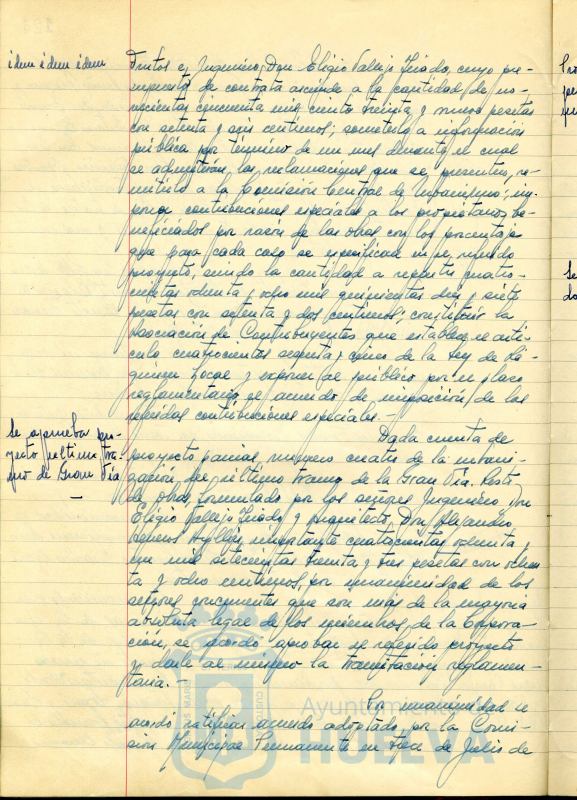 idem idem idem
Ingeniero, Don Eligio Vallejo Triado, cuyo pre-
supuesto de contrata asciende a la cantidad de no-
vecientas cincuenta mil ciento treinta y nueve pesetas
con setenta y seis centimos; someterlo a información
pública por término de un mes durante el cual
se admitirán las reclamaciones que se presenten, re-
mitirlo a la Comisión Central de Urbanismo; im-
poner contribuciones especiales a los propietarios be-
neficiados por razón de las obras con los porcentajes
que para cada caso se especifican en el referido
proyecto, siendo la cantidad a repartir cuatro-
cientas ochenta y ocho mil quinientas diez y siete
pesetas con setenta y dos centimos; constituir la
Asociación de Contribuyentes que establece el artí-
culo cuatrocientos setenta y cinco de la Ley de Ré-
gimen Local y exponer al público por el plazo
reglamentario el acuerdo de imposición de las
referidas contribuciones especiales.-
Se aprueba pro-
yecto último tra-
mo de Gran Vía
—
Dada cuenta de
proyecto parcial número cuatro de la urbani-
zación del último tramo de la Gran Vía. Resto
de obras, formulado por los señores Ingeniero, Don
Eligio Vallejo Triado y Arquitecto, Don Alejandro
Herrero Ayllón, importante cuatrocientas ochenta y
un mil setecientas treinta y tres pesetas con ochen-
ta y ocho centimos, por unanimidad de los
señores concurrentes que son más de la mayoría
absoluta legal de los miembros de la Corpora-
ción, se acordó aprobar el referido proyecto
y darle al mismo la tramitación reglamen-
taria.
Por unanimidad se
acordó ratificar acuerdo adoptado por la Comi-
sión Municipal Permanente en trece de Julio de
Ayuntamiento
HUELVA